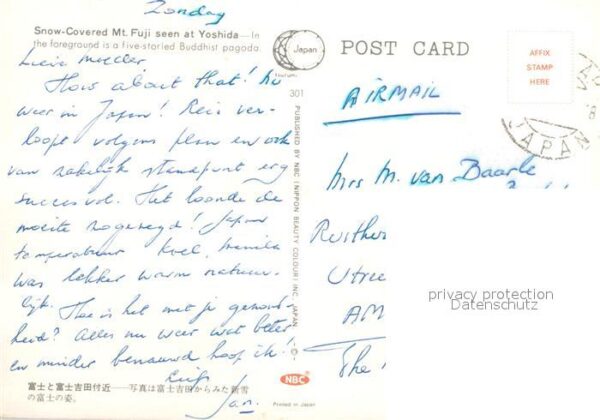 Zondag
Snow-Covered Mt. Fuji seen at Yoshida—In
the foreground is a five-storied Buddhist pagoda.
Lieve moeder.
How about that! nu
weer in Japan! Reis ver-
loopt volgens plan en ook
van zakelijk standpunt erg
succesvol. Het loonde de
moeite zogezegd! Japan
temperatuur koel, Manila
was lekker warm natuur-
lijk. Hoe is het met je gezond-
heid? Alles nu weer wat beter
en minder benauwd hoop ik!
Liefs
Jan.
富士と富士吉田付近——写真は富士吉田からみた新雪
の富士の姿。
Japan
301
PUBLISHED BY NBC (NIPPON BEAUTY COLOUR) INC. JAPAN
NBC
Printed in Japan
POST CARD
AFFIX
STAMP
HERE
JAPAN
AIRMAIL
Mrs M. van Baarle
Ruither
Utrec
AM
The
privacy protection
Datenschutz